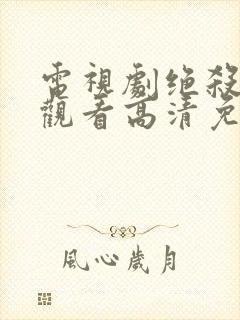 電視劇绝殺
觀看高清免
風心歲月